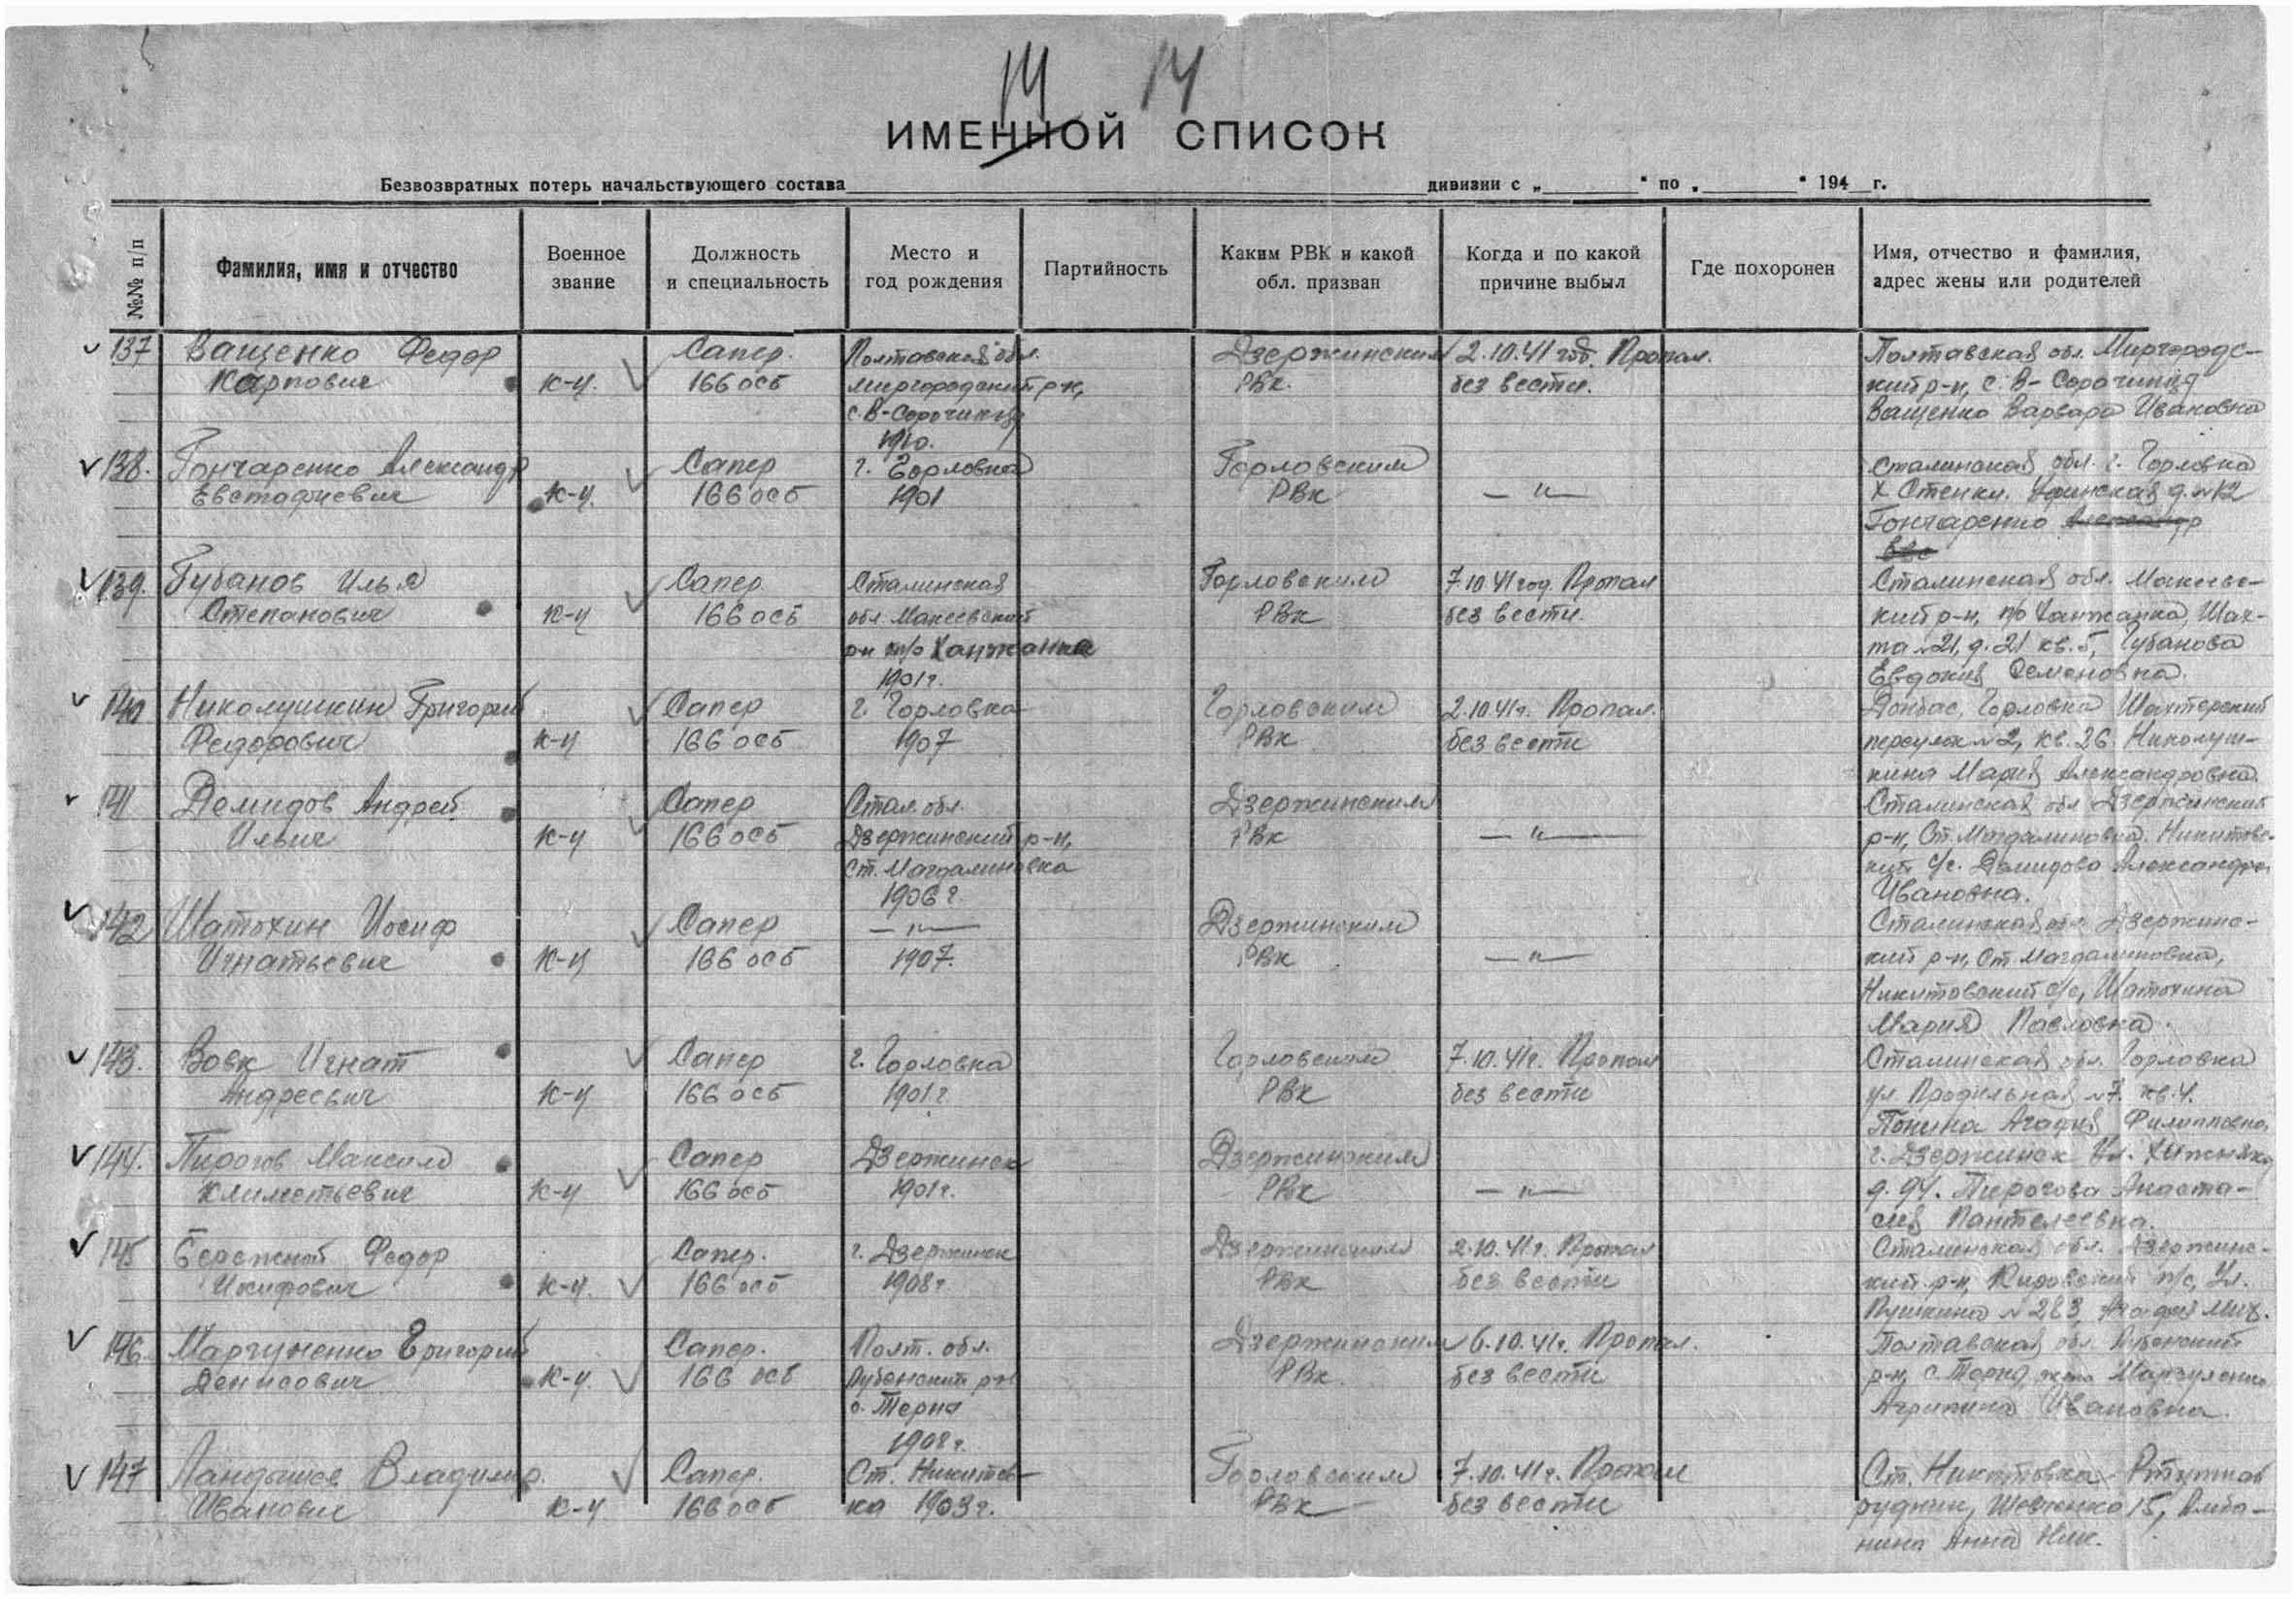 14 14
ИМЕННОЙ СПИСОК
Безвозвратных потерь начальствующего состава дивизии с „ " по „ " 194 г.
№№ п/п
Фамилия, имя и отчество
Военное звание
Должность и специальность
Место и год рождения
Партийность
Каким РВК и какой обл. призван
Когда и по какой причине выбыл
Где похоронен
Имя, отчество и фамилия, адрес жены или родителей
137 Ващенко Федор Сапер. Полтавская обл. Дзержинским 2.10.41 год. Пропал. Полтавская обл. Миргородс-
Карпович к-ц. 166 осб миргородский р-н, РВк. без вести. кий р-н, с. В-Сорочинцы
с. В-Сорочинцы Ващенко Варвара Ивановна
1910.
138. Гончаренко Александр Сапер г. Горловка Горловским Сталинская обл. г. Горловка
Евстафиевич к-ц. 166 осб 1901 РВк — " — х Стенки. д. №12
Гончаренко Александр
139. Губанов Илья Сапер Сталинская Горловским 7.10.41 год. Пропал Сталинская обл. Макеевс-
Степанович к-ц 166 осб обл. Макеевский РВк без вести. кий р-н, п/о Ханжанка, Шах-
р-н п/о Ханжанка та №21, д. 21 кв. 5, Губанова
1901 г. Евдокия Семеновна.
140 Николушкин Григорий Сапер г. Горловка Горловским 2.10.41 г. Пропал. Донбас, Горловка Шахтерский
Федорович к-ц 166 осб 1907 РВк без вести переулок №2, кв. 26. Николуш-
кина Мария Александровна.
141 Демидов Андрей Сапер Стал. обл. Дзержинским Сталинская обл Дзержинский
Ильич к-ц 166 осб Дзержинский р-н, РВк — " — р-н, Ст. Магдалиновка. Никитовс-
ст. Магдалиновка кий с/с. Демидова Александра
1906 г Ивановна.
142 Шатохин Иосиф Сапер — " — Дзержинским Сталинская обл. Дзержинс-
Игнатьевич к-ц 166 осб 1907. РВк — " — кий р-н, Ст Магдалиновка,
Никитовский с/с, Шатохина
Мария Павловна.
143. Вовк Игнат Сапер г. Горловка Горловским 7.10.41 г. Пропал Сталинская обл. Горловка
Андреевич к-ц 166 осб 1901 г РВк без вести ул Профильная №7. кв. 4.
Понина Агафия Филипповна.
144. Пирогов Максим Сапер Дзержинск Дзержинским г. Дзержинск Ул. Хижняка
Климетьевич к-ц 166 осб 1901 г. РВк — " — д. 94. Пирогова Анаста-
сия Пантелеевна.
145 Бережной Федор Сапер. г. Дзержинск Дзержинским 2.10.41 г. Пропал Сталинская обл. Дзержинс-
Икифович к-ц. 166 осб 1908 г РВк без вести кий р-н, Кировский п/с, Ул.
Пушкина №283, Агафия Мих.
146. Маргуненко Григорий Сапер. Полт. обл. Дзержинским 6.10.41 г. Пропал. Полтавская обл.
Денисович к-ц. 166 осб р-н РВк. без вести р-н, с. Терны, жена
с. Терны Агрипина Ивановна.
1908 г.
147 Ландышев Владимир. Сапер. Ст. Никитов- Горловским 7.10.41 г. Пропал Ст. Никитовка Ртутный
Иванович к-ц. 166 осб ка 1903 г. РВк без вести рудник, Шевченко 15,
Анна Ник.